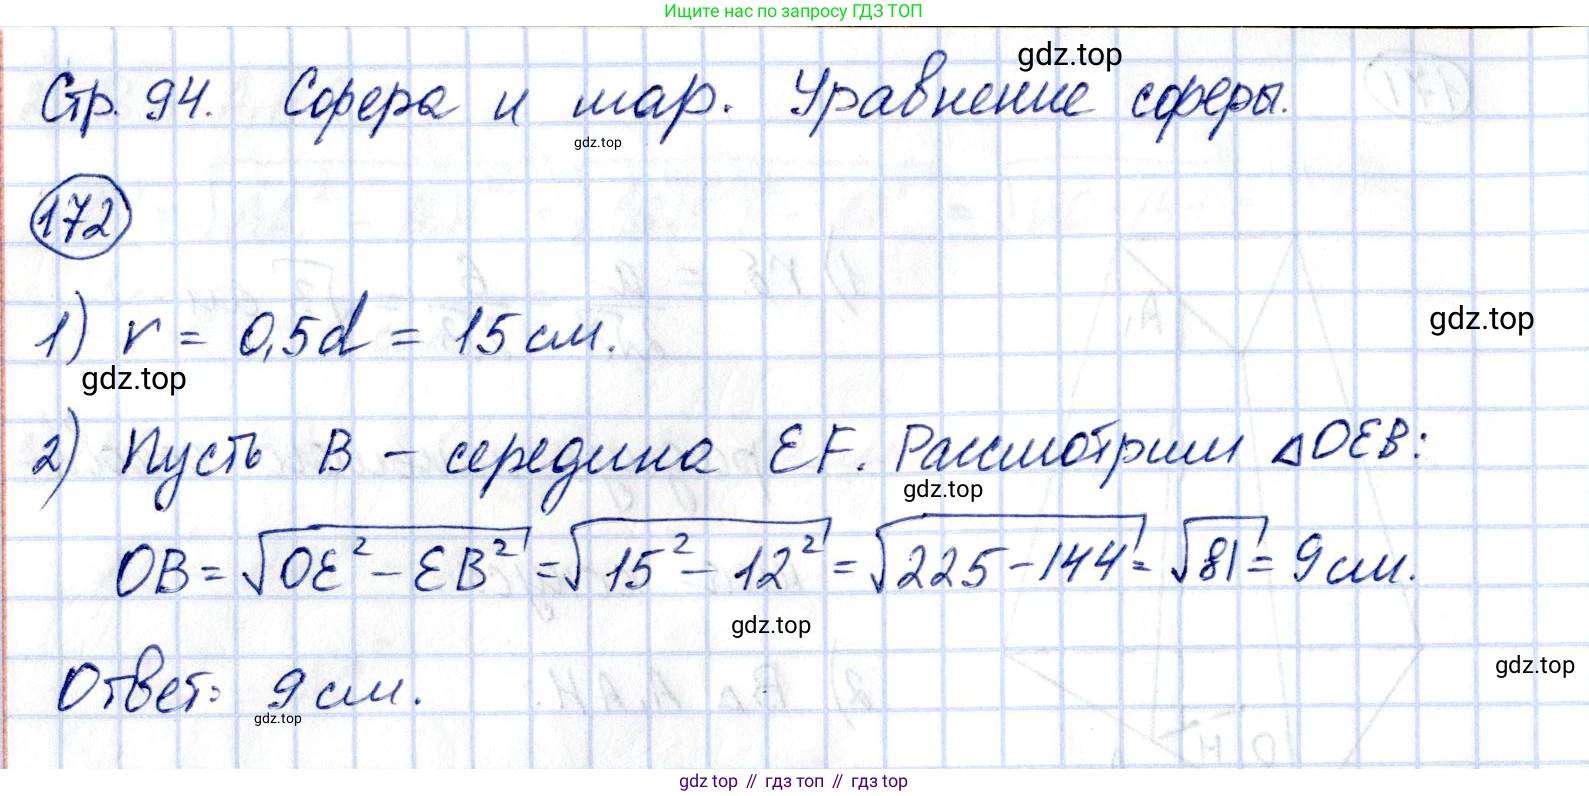 Ищите нас по запросу ГДЗ ТОП
gdz.top
Стр. 94. Сфера и шар. Уравнение сферы.
gdz.top
172
gdz.top
1) r = 0,5d = 15 см.
gdz.top
2) Пусть B – середина EF. Рассмотрим ΔOEB:
gdz.top
OB = √OE² – EB² = √15² – 12² = √225 – 144 = √81 = 9 см.
gdz.top
gdz.top
Ответ: 9 см.
gdz.top
gdz top // гдз топ // гдз top